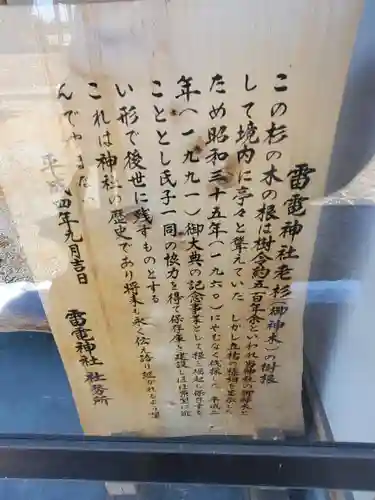 雷電神社老杉(御神木)の樹根
この杉の木の根は樹令約五百年余といわれ当神社の御神木と
して境内に亭々と聳えていた しかし
ため昭和三十五年(一九六〇)にやむなく伐採した 平成三
年(一九九一)御大典の記念事業として根を掘起し保存する
こととし氏子一同の協力を得て保存庫を建設しほぼ原型に近
い形で後世に残すものとする
これは神社の歴史であり将来も永く伝え語り継がれるよう望
んでやまない
平成四年九月吉日
雷電神社 社務所